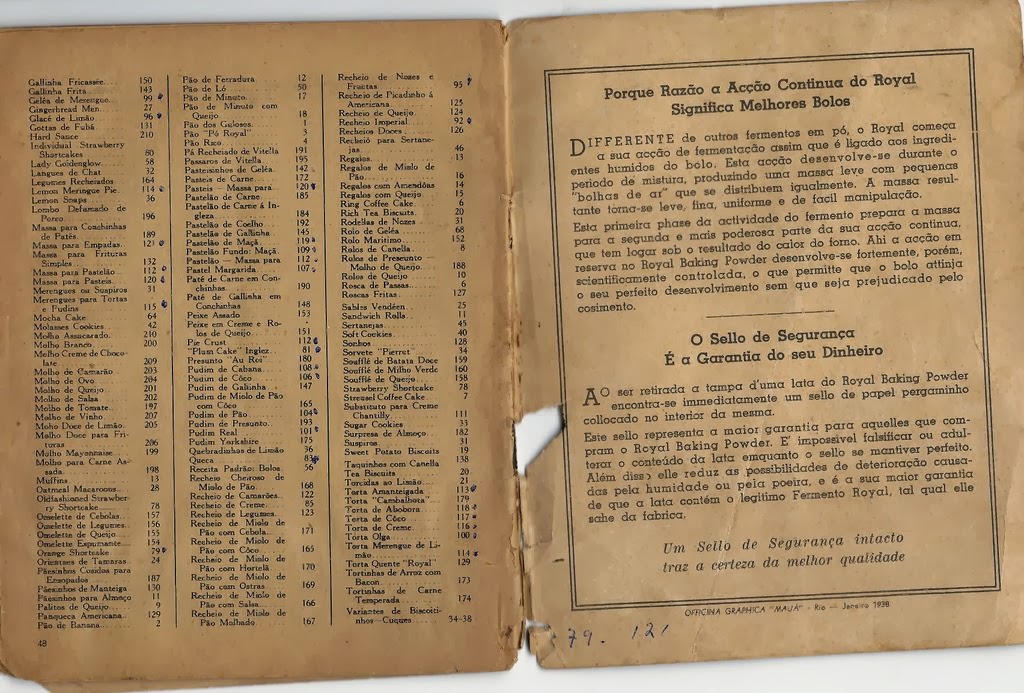 Gallinha Fricassée 150
Gallinha Frita 143
Geléa de Merengue 99
Gingerbread Men 27
Glacé de Limão 96
Gottas de Fubá 131
Hard Sauce 210
Individual Strawberry
Shortcakes 80
Lady Goldenglow 58
Langues de Chat 32
Legumes Recheiados 164
Lemon Meringue Pie 114
Lemon Snaps 36
Lombo Defumado de
Porco 196
Massa para Conchinhas
de Patés 189
Massa para Empadas 121
Massa para Frituras
Simples 132
Massa para Pastelão 112
Massa para Pasteis 120
Merengues ou Suspiros 31
Merengues para Tortas
e Pudins 115
Mocha Cake 64
Molasses Cookies 42
Molho Assucarado 210
Molho Branco 200
Molho Creme de Choco-
late 209
Molho de Camarão 203
Molho de Ovo 204
Molho de Queijo 201
Molho de Salsa 202
Molho de Tomate 197
Molho de Vinho 207
Moho Doce de Limão 205
Molho Doce para Fri-
turas 206
Molho Mayonnaise 199
Molho para Carne As-
sada 198
Muffins 13
Oatmeal Macaroons 28
Oldfashioned Strawber-
ry Shortcake 78
Omelette de Cebolas 157
Omelette de Legumes 156
Omelette de Queijo 155
Omelette Espumante 154
Orange Shortcake 79
Orientaes de Tamaras 24
Pãesinhos Cosidos para
Ensopados 187
Pãesinhos de Manteiga 130
Pãesinhos para Almoço 11
Palitos de Queijo 9
Panqueca Americana 129
Pão de Banana 2
48
Pão de Ferradura 12
Pão de Ló 50
Pão de Minuto 17
Pão de Minuto com
Queijo 18
Pão dos Gulosos 1
Pão "Pó Royal" 3
Pão Rico 4
Pá Recheiado de Vitella 191
Passaros de Vitella 195
Pasteisinhos de Geléa 142
Pasteis de Carne 172
Pasteis — Massa para 120
Pastelão de Carne 185
Pastelão de Carne á In-
gleza 184
Pastelão de Coelho 192
Pastelão de Gallinha 145
Pastelão de Maçã 119
Pastelão Fundo: Maçã 109
Pastelão — Massa para 112
Pastel Margarida 107
Paté de Carne em Con-
chinhas 190
Paté de Gallinha em
Conchinhas 148
Peixe Assado 153
Peixe em Creme e Ro-
los de Queijo 151
Pie Crust 112
"Plum Cake" Inglez 81
Presunto "Au Roi" 180
Pudim de Cabana 108
Pudim de Côco 106
Pudim de Gallinha 147
Pudim de Miolo de Pão
com Côco 165
Pudim de Pão 104
Pudim de Presunto 193
Pudim Real 101
Pudim Yorkshire 175
Quebradinhos de Limão 36
Queca 83
Receita Padrão: Bolos 56
Recheio Cheiroso de
Miolo de Pão 168
Recheio de Camarões 122
Recheio de Creme 85
Recheio de Legumes 123
Recheio de Miolo de
Pão com Cebola 171
Recheio de Miolo de
Pão com Côco 165
Recheio de Miolo de
Pão com Hortelã 170
Recheio de Miolo de
Pão com Ostras 169
Recheio de Miolo de
Pão com Salsa 166
Recheio de Miolo de
Pão Molhado 167
Recheio de Nozes e
Fructas 95
Recheio de Picadinho á
Americana 125
Recheio de Queijo 124
Recheio Imperial 92
Recheios Doces 126
Recheio para Sertane-
jas 46
Regalos 13
Regalos de Miolo de
Pão 16
Regalos com Amendóas 14
Regalos com Queijo 15
Ring Coffee Cake 6
Rich Tea Biscuits 20
Rodellas de Nozes 31
Rolo de Geléa 68
Rolo Maritimo 152
Rolos de Canella 8
Rolos de Presunto —
Molho de Queijo 188
Rolos de Queijo 10
Rosca de Passas 6
Roscas Fritas 127
Sablés Vendéen 25
Sandwich Rolls 11
Sertanejas 45
Soft Cookies 40
Sonhos 128
Sorvete "Pierrot" 34
Soufflé de Batata Doce 159
Soufflé de Milho Verde 160
Soufflé de Queijo 158
Strawberry Shortcake 78
Streusel Coffee Cake 7
Substituto para Creme
Chantilly 111
Sugar Cookies 33
Surpresa de Almoço 182
Suspiros 31
Sweet Potato Biscuits 19
Taquinhos com Canella 138
Tea Biscuits 20
Torcidas ao Limão 21
Torta Amanteigada 113
Torta "Cambalhota" 179
Torta de Abobora 118
Torta de Côco 117
Torta de Creme 116
Torta Olga 100
Torta Merengue de Li-
mão 114
Torta Quente "Royal" 129
Tortinhas de Arroz com
Bacon 173
Tortinhas de Carne
Temperada 174
Variantes de Biscoiti-
nhos—Cuques 34-38
Porque Razão a Acção Continua do Royal
Significa Melhores Bolos
DIFFERENTE de outros fermentos em pó, o Royal começa
a sua acção de fermentação assim que é ligado aos ingredi-
entes humidos do bolo. Esta acção desenvolve-se durante o
periodo de mistura, produzindo uma massa leve com pequenas
"bolhas de ar" que se distribuem igualmente. A massa resul-
tante torna-se leve, fina, uniforme e de facil manipulação.
Esta primeira phase da actividade do fermento prepara a massa
para a segunda e mais poderosa parte da sua acção continua,
que tem logar sob o resultado do calor do forno. Ahi a acção em
reserva no Royal Baking Powder desenvolve-se fortemente, porém,
scientificamente controlada, o que permitte que o bolo attinja
o seu perfeito desenvolvimento sem que seja prejudicado pelo
cosimento.
O Sello de Segurança
É a Garantia do seu Dinheiro
AO ser retirada a tampa d'uma lata do Royal Baking Powder
encontra-se immediatamente um sello de papel pergaminho
collocado no interior da mesma.
Este sello representa a maior garantia para aquelles que com-
pram o Royal Baking Powder. E' impossivel falsificar ou adul-
terar o conteúdo da lata emquanto o sello se mantiver perfeito.
Além disso elle reduz as possibilidades de deterioração causa-
das pela humidade ou pela poeira, e é a sua maior garantia
de que a lata contém o legitimo Fermento Royal, tal qual elle
sahe da fabrica.
Um Sello de Segurança intacto
traz a certeza da melhor qualidade
OFFICINA GRAPHICA "MAUÁ" - Rio — Janeiro 1938
79. 121